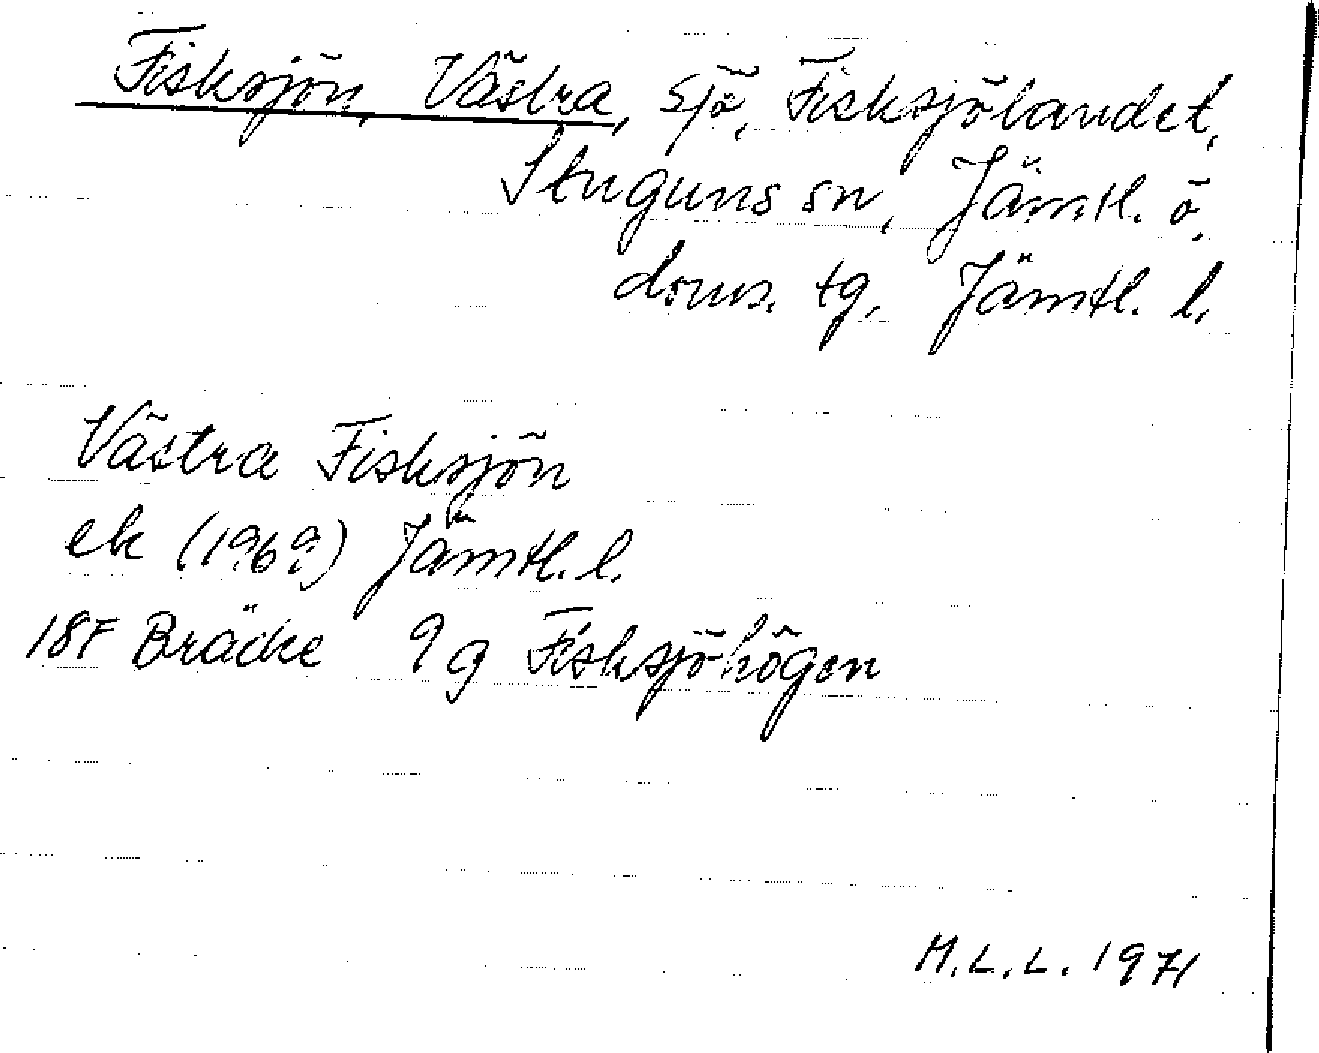 Fisksjön, Västra, sjö, Fisksjölandet,
Stuguns sn, Jämtl. ö.
doms. tg, Jämtl. l.
Västra Fisksjön
ek (1969) Jämtl. l.
18F Bräcke 9g Fisksjöhögen
M.L.L. 1971